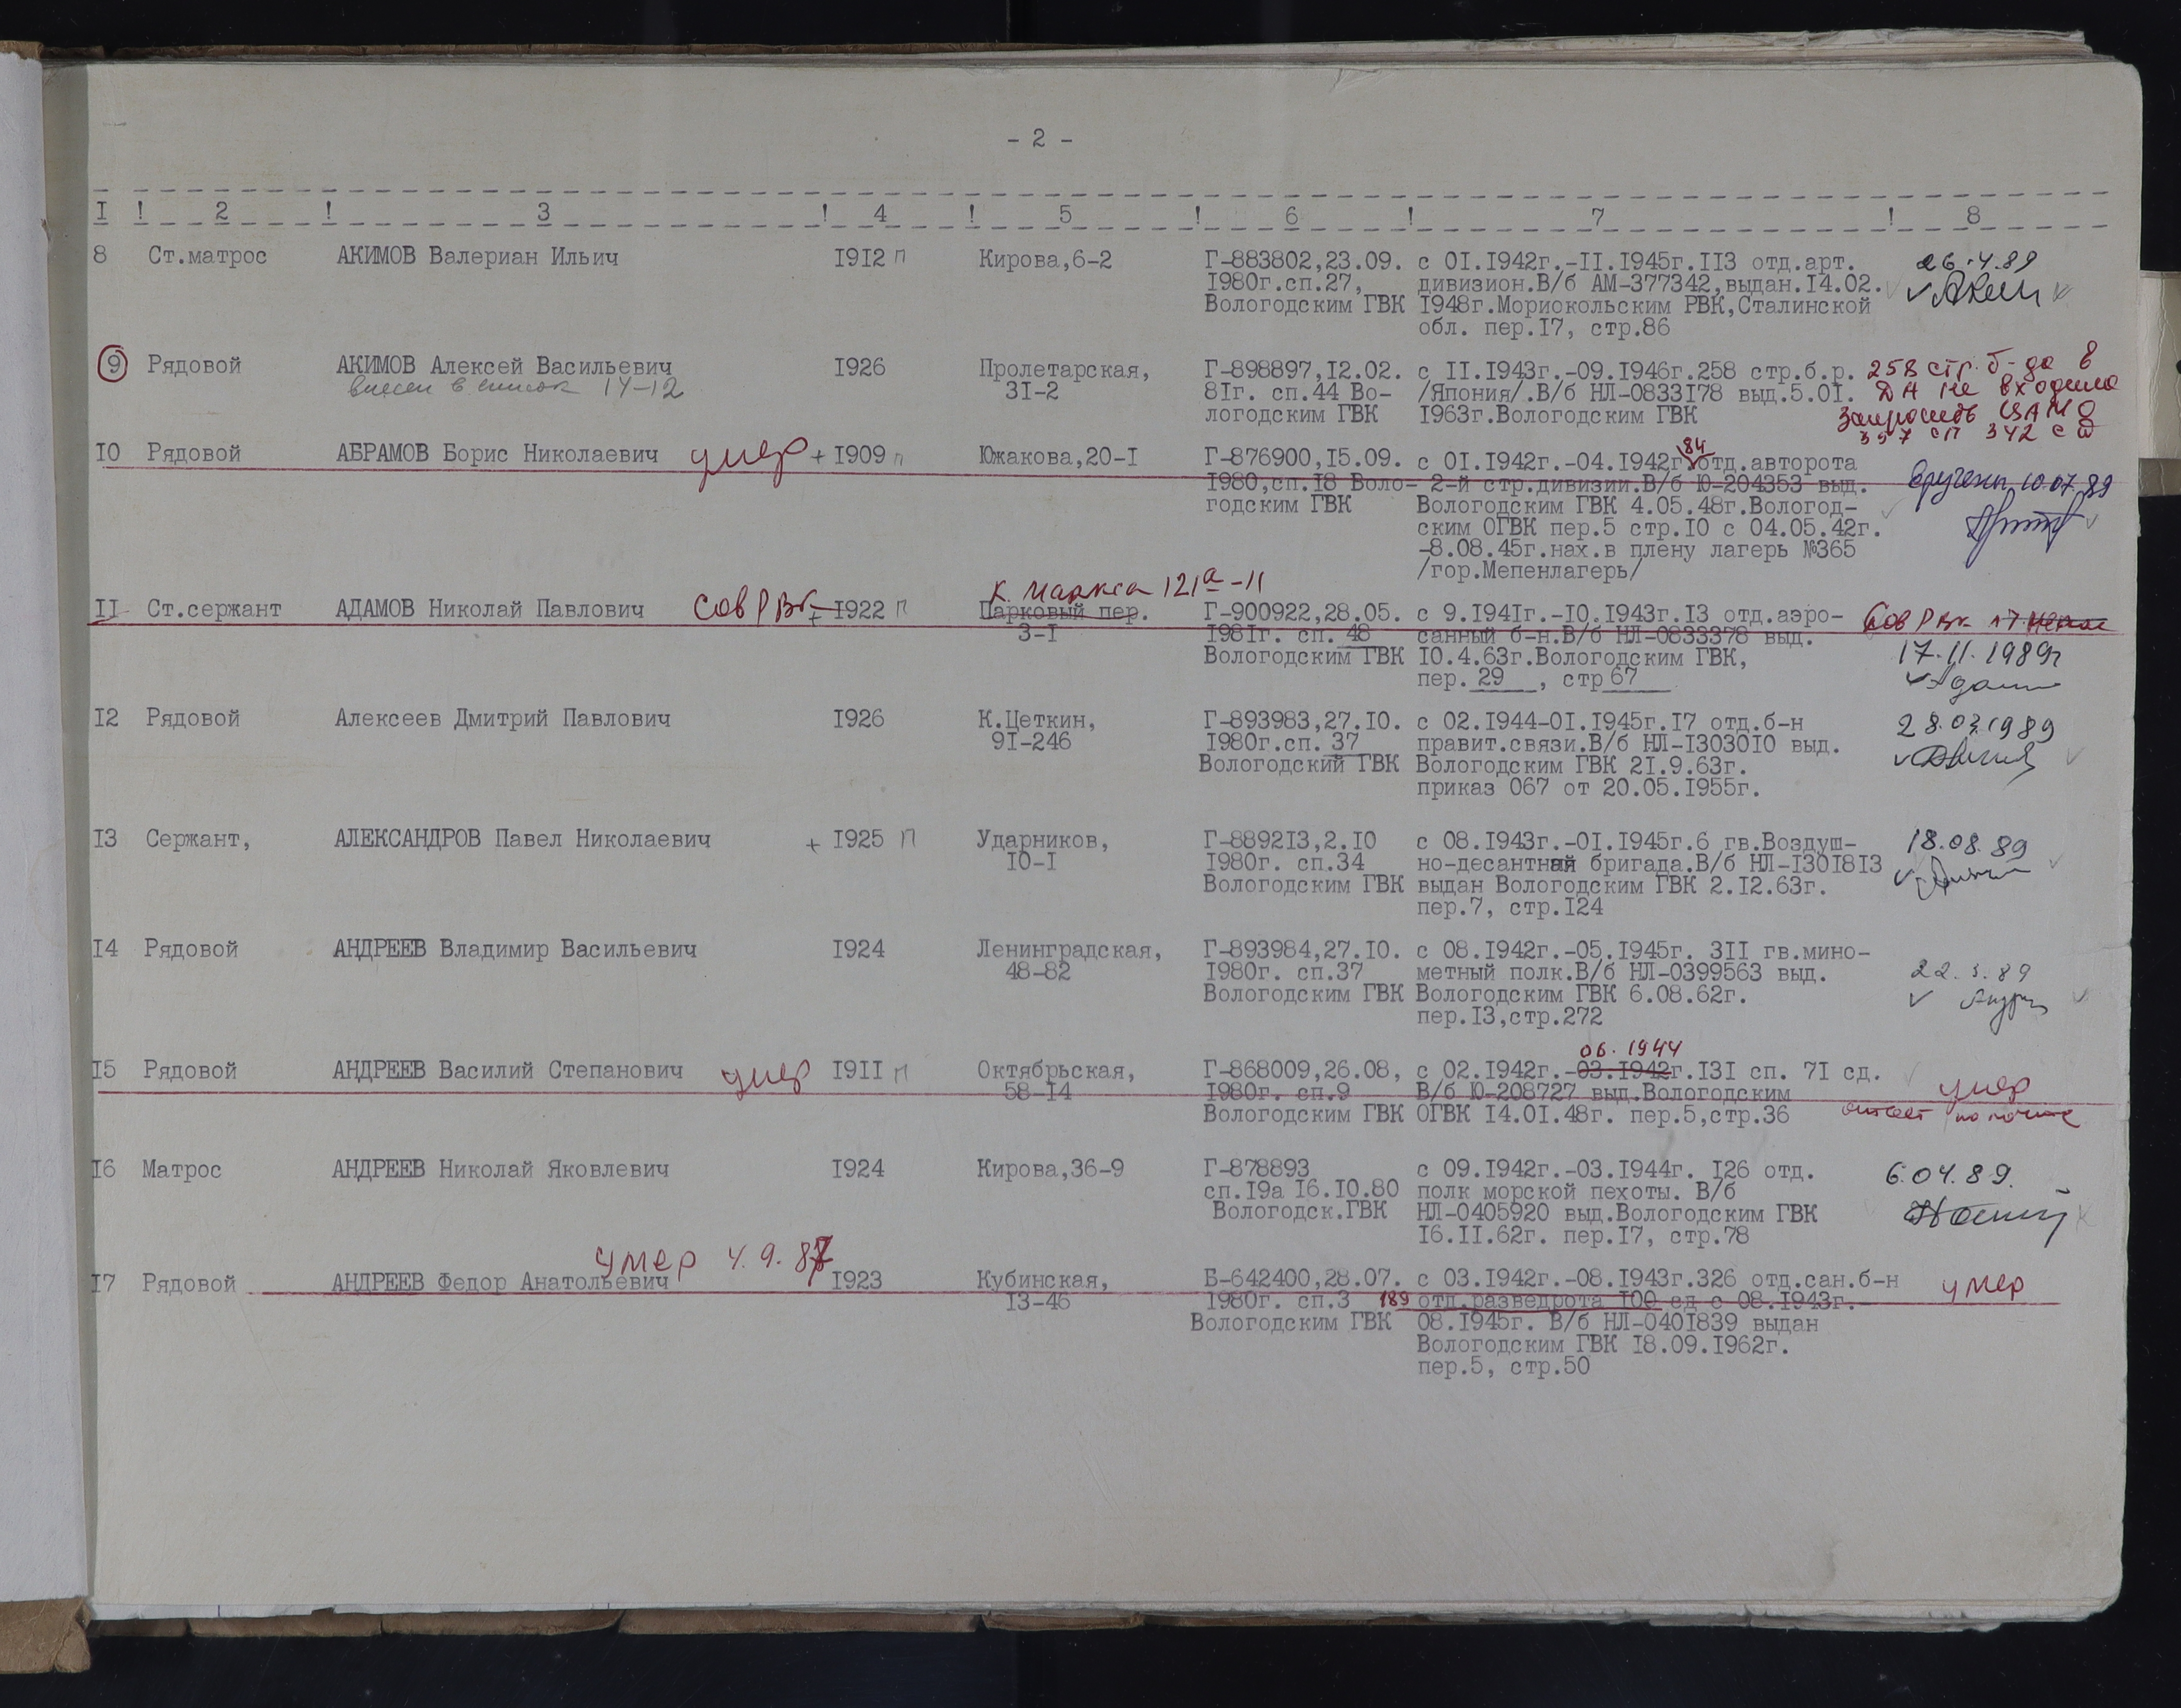 - 2 -
I ! 2 ! 3 ! 4 ! 5 ! 6 ! 7 ! 8
8 Ст.матрос АКИМОВ Валериан Ильич I9I2 п Кирова,6-2 Г-883802,23.09. с 0I.I942г.-II.I945г.II3 отд.арт. 26.4.89
I980г.сп.27, дивизион.В/б АМ-377342,выдан.I4.02.
Вологодским ГВК I948г.Мориокольским РВК,Сталинской
обл. пер.I7, стр.86
9 Рядовой АКИМОВ Алексей Васильевич I926 Пролетарская, Г-898897,I2.02. с II.I943г.-09.I946г.258 стр.б.р. 258 стр. б-да в
внесен в список 14-12 3I-2 8Iг. сп.44 Во- /Япония/.В/б НЛ-0833I78 выд.5.0I. ДА не входила
логодским ГВК I963г.Вологодским ГВК Запросить ЦАМО
357 сп 342 сд
84
I0 Рядовой АБРАМОВ Борис Николаевич умер + I909 п Южакова,20-I Г-876900,I5.09. с 0I.I942г.-04.I942г. отд.авторота
I980,сп.I8 Воло- 2-й стр.дивизии.В/б Ю-204353 выд. вручены 10.07.89
годским ГВК Вологодским ГВК 4.05.48г.Вологод-
ским ОГВК пер.5 стр.I0 с 04.05.42г.
-8.08.45г.нах.в плену лагерь №365
/гор.Мепенлагерь/
К. Маркса 121а-11
II Ст.сержант АДАМОВ Николай Павлович Сов РВК + I922 п Парковый пер. Г-900922,28.05. с 9.I94Iг.-I0.I943г.I3 отд.аэро- Сов РВК
3-I I98Iг. сп. 48 санный б-н.В/б НЛ-0833378 выд.
Вологодским ГВК I0.4.63г.Вологодским ГВК, 17.11.1989г
пер. 29 , стр 67
I2 Рядовой Алексеев Дмитрий Павлович I926 К.Цеткин, Г-893983,27.I0. с 02.I944-0I.I945г.I7 отд.б-н 28.03.1989
9I-246 I980г.сп. 37 правит.связи.В/б НЛ-I3030I0 выд.
Вологодский ГВК Вологодским ГВК 2I.9.63г.
приказ 067 от 20.05.I955г.
I3 Сержант, АЛЕКСАНДРОВ Павел Николаевич + I925 п Ударников, Г-8892I3,2.I0 с 08.I943г.-0I.I945г.6 гв.Воздуш- 18.08.89
I0-I I980г. сп.34 но-десантная бригада.В/б НЛ-I30I8I3
Вологодским ГВК выдан Вологодским ГВК 2.I2.63г.
пер.7, стр.I24
I4 Рядовой АНДРЕЕВ Владимир Васильевич I924 Ленинградская, Г-893984,27.I0. с 08.I942г.-05.I945г. 3II гв.мино-
48-82 I980г. сп.37 метный полк.В/б НЛ-0399563 выд. 22.3.89
Вологодским ГВК Вологодским ГВК 6.08.62г.
пер.I3,стр.272
06.1944
I5 Рядовой АНДРЕЕВ Василий Степанович умер I9II п Октябрьская, Г-868009,26.08, с 02.I942г.-03.I942г.I3I сп. 7I сд.
58-I4 I980г. сп.9 В/б Ю-208727 выд.Вологодским умер
Вологодским ГВК ОГВК I4.0I.48г. пер.5,стр.36
I6 Матрос АНДРЕЕВ Николай Яковлевич I924 Кирова,36-9 Г-878893 с 09.I942г.-03.I944г. I26 отд. 6.04.89.
сп.I9а I6.I0.80 полк морской пехоты. В/б
Вологодск.ГВК НЛ-0405920 выд.Вологодским ГВК
I6.II.62г. пер.I7, стр.78
умер 4.9.87
I7 Рядовой АНДРЕЕВ Федор Анатольевич I923 Кубинская, Б-642400,28.07. с 03.I942г.-08.I943г.326 отд.сан.б-н умер
I3-46 I980г. сп.3 189 отд.разведрота I00 сд с 08.I943г.-
Вологодским ГВК 08.I945г. В/б НЛ-040I839 выдан
Вологодским ГВК I8.09.I962г.
пер.5, стр.50